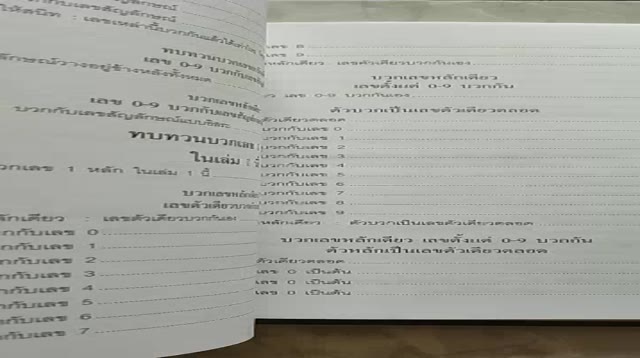 ให้สนิท : เลขเหล่านี้บวกกันแล้วได้
ทบทวนบวกเลข
เลข 0-9 บวกกับเลข
บวกเลขหลัก
เลข 0-9 บวกกับเลข
บวกกับเลขสัญลักษณ์แบบอิสระ
ทบทวนบวกเลข
ในเล่ม
บวกเลข 1 หลัก ในเล่ม 1 นี้
บวกเลขหลัก
เลขตัวเดียว
หลักเดียว : เลขตัวเดียวบวกกันเอง
บวกกับเลข 0
บวกกับเลข 1
บวกกับเลข 2
บวกกับเลข 3
บวกกับเลข 4
บวกกับเลข 5
บวกกับเลข 6
บวกกับเลข 7
เลข 8
เลข 9
หลักเดียว เลขตัวเดียวบวกกันเอง
บวกเลขหลักเดียว
เลขตั้งแต่ 0-9 บวกกัน
เลข 0-9 บวกกันเอง
ตัวบวกเป็นเลขตัวเดียวตลอด
ตัวเดียวตลอด
บวกกับเลข 0
บวกกับเลข 1
บวกกับเลข 2
บวกกับเลข 3
บวกกับเลข 4
บวกกับเลข 5
บวกกับเลข 6
บวกกับเลข 7
บวกกับเลข 8
บวกกับเลข 9
หลักเดียว : ตัวบวกเป็นเลขตัวเดียวตลอด
บวกเลขหลักเดียว เลขตั้งแต่ 0-9 บวกกัน
ตัวหลักเป็นเลขตัวเดียวตลอด
ตัวเดียวตลอด
เลข 0 เป็นต้น
เลข 0 เป็นต้น
เลข 0 เป็นต้น